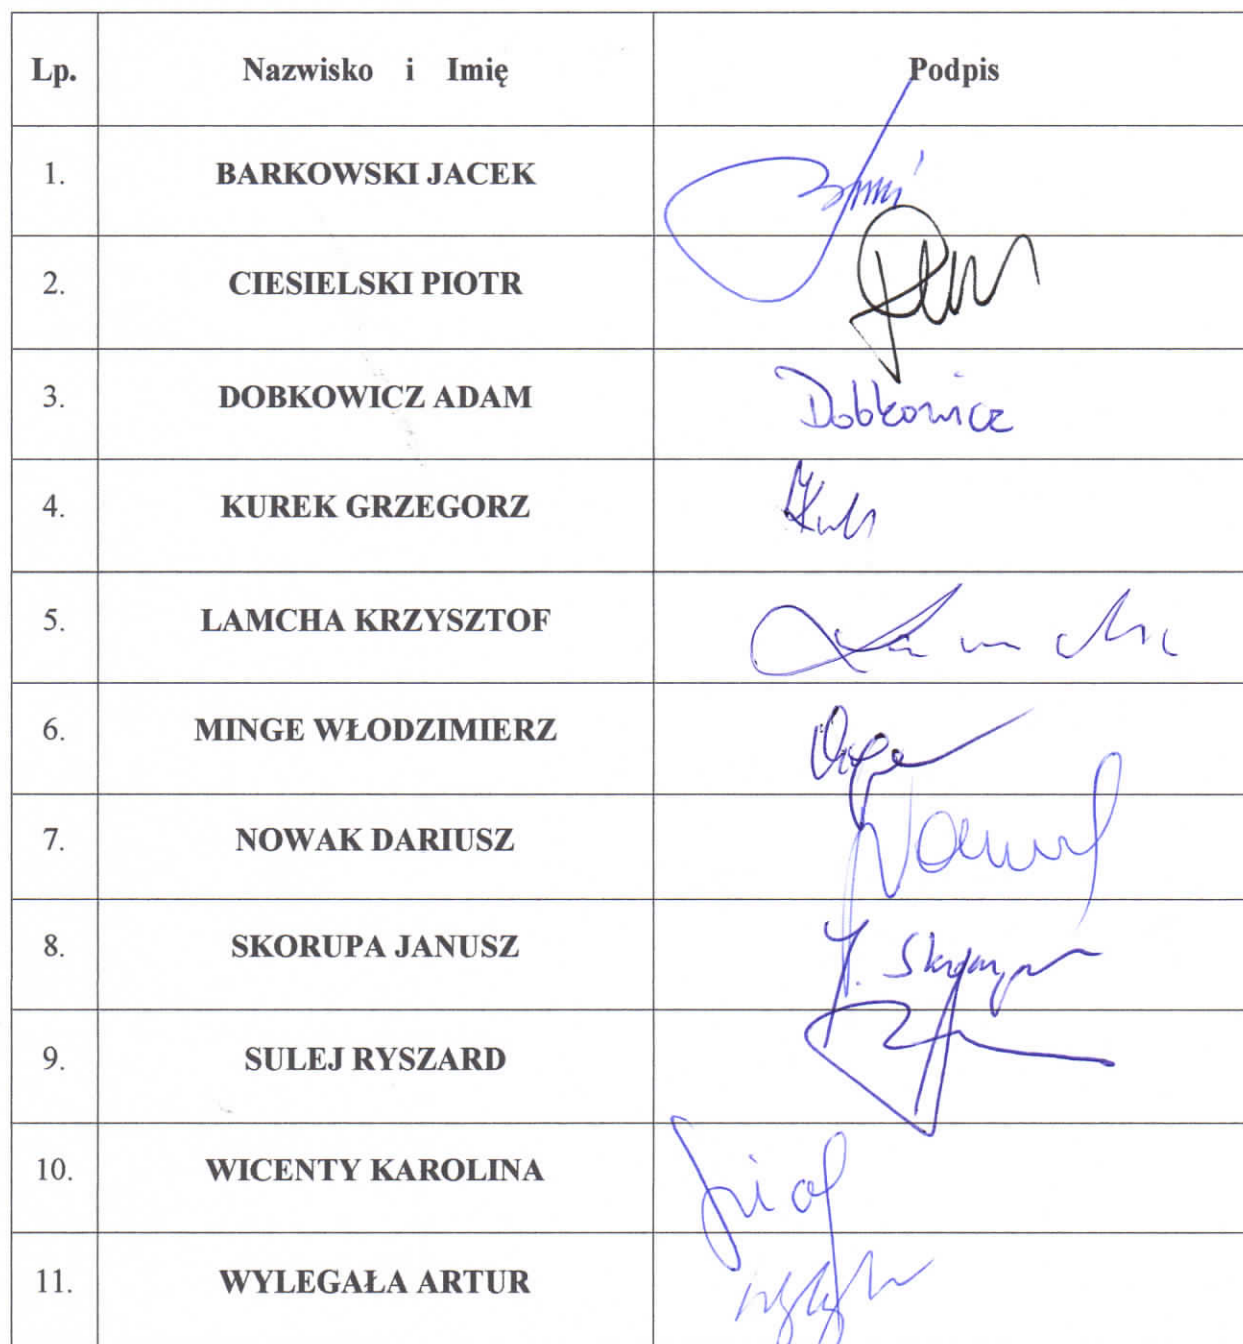 Lp. Nazwisko i Imię Podpis
1. BARKOWSKI JACEK
2. CIESIELSKI PIOTR
3. DOBKOWICZ ADAM Dobkowicz
4. KUREK GRZEGORZ
5. LAMCHA KRZYSZTOF Lamcha
6. MINGE WŁODZIMIERZ
7. NOWAK DARIUSZ Nowak
8. SKORUPA JANUSZ
9. SULEJ RYSZARD
10. WICENTY KAROLINA
11. WYLEGAŁA ARTUR